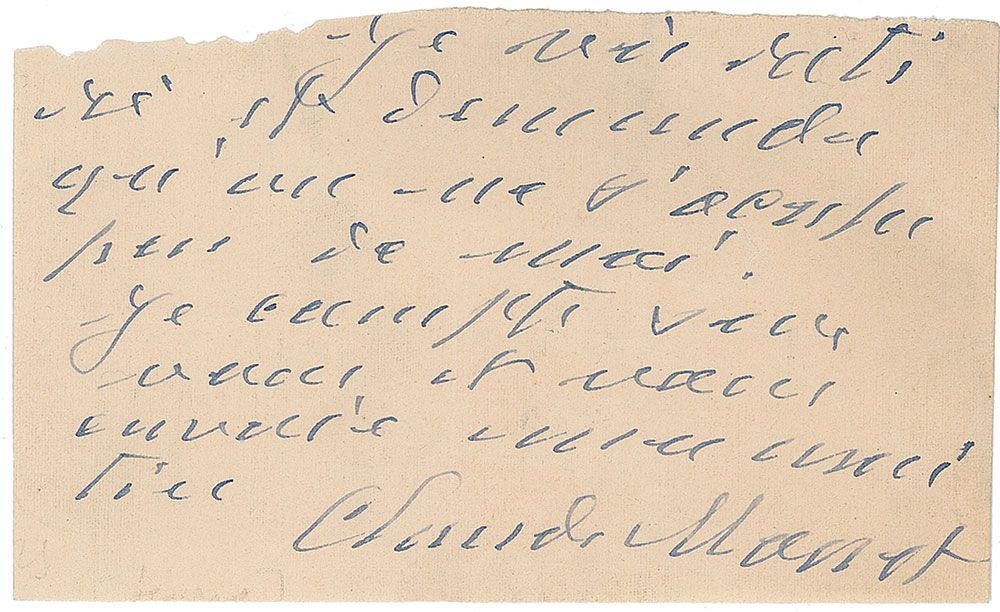 Je vis reti
ré et demande
qu'on ne s'occupe
pas de moi.
Je compte sur
vous et vous
envoie ami
tiés
Claude Monet